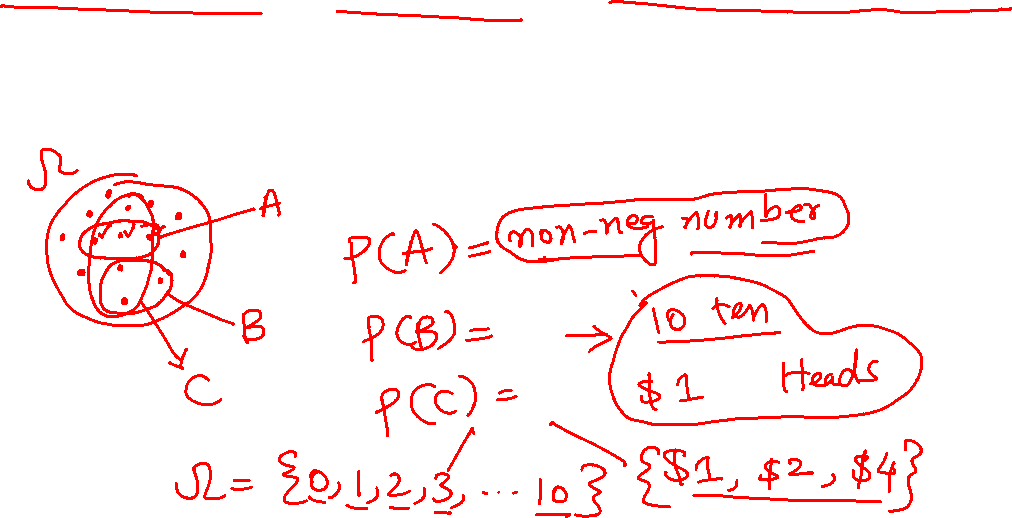 Ω
A
P(A) = non-neg number
B
P(B) = → 10 ten
C
P(C) = $1 Heads
Ω = {0, 1, 2, 3, ... 10} {$1, $2, $4}